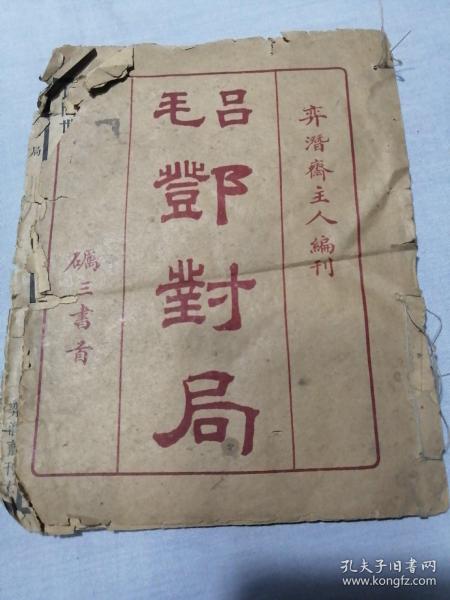 弈潛齋主人編刊
呂毛鄧對局
礪三書首
局
孔夫子旧书网
www.kongfz.com